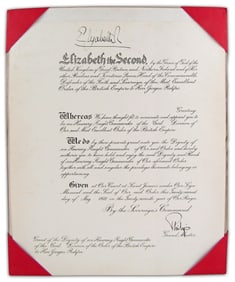 Elizabeth R
Elizabeth the Second, by the Grace of God of the
United Kingdom of Great Britain and Northern Ireland and of Her
other Realms and Territories Queen, Head of the Commonwealth,
Defender of the Faith and Sovereign of the Most Excellent
Order of the British Empire to
Greeting
Whereas We have thought fit to nominate and appoint you to
be an Honorary Knight Commander of the Civil Division of
Our said Most Excellent Order of the British Empire
We do by these presents grant unto you the Dignity of
an Honorary Knight Commander of Our said Order and hereby
authorise you to have hold and enjoy the said Dignity and Rank of
an Honorary Knight Commander of Our aforesaid Order
together with all and singular the privileges thereunto belonging or
appertaining.
Given at Our Court at Saint James's under Our Sign
Manual and the Seal of Our said Order this
day of May in the year of Our Reign.
By the Sovereign's Command.
Philip
Grand Master
Grant of the Dignity of an Honorary Knight Commander
of the Civil Division of the Order of the British Empire
to